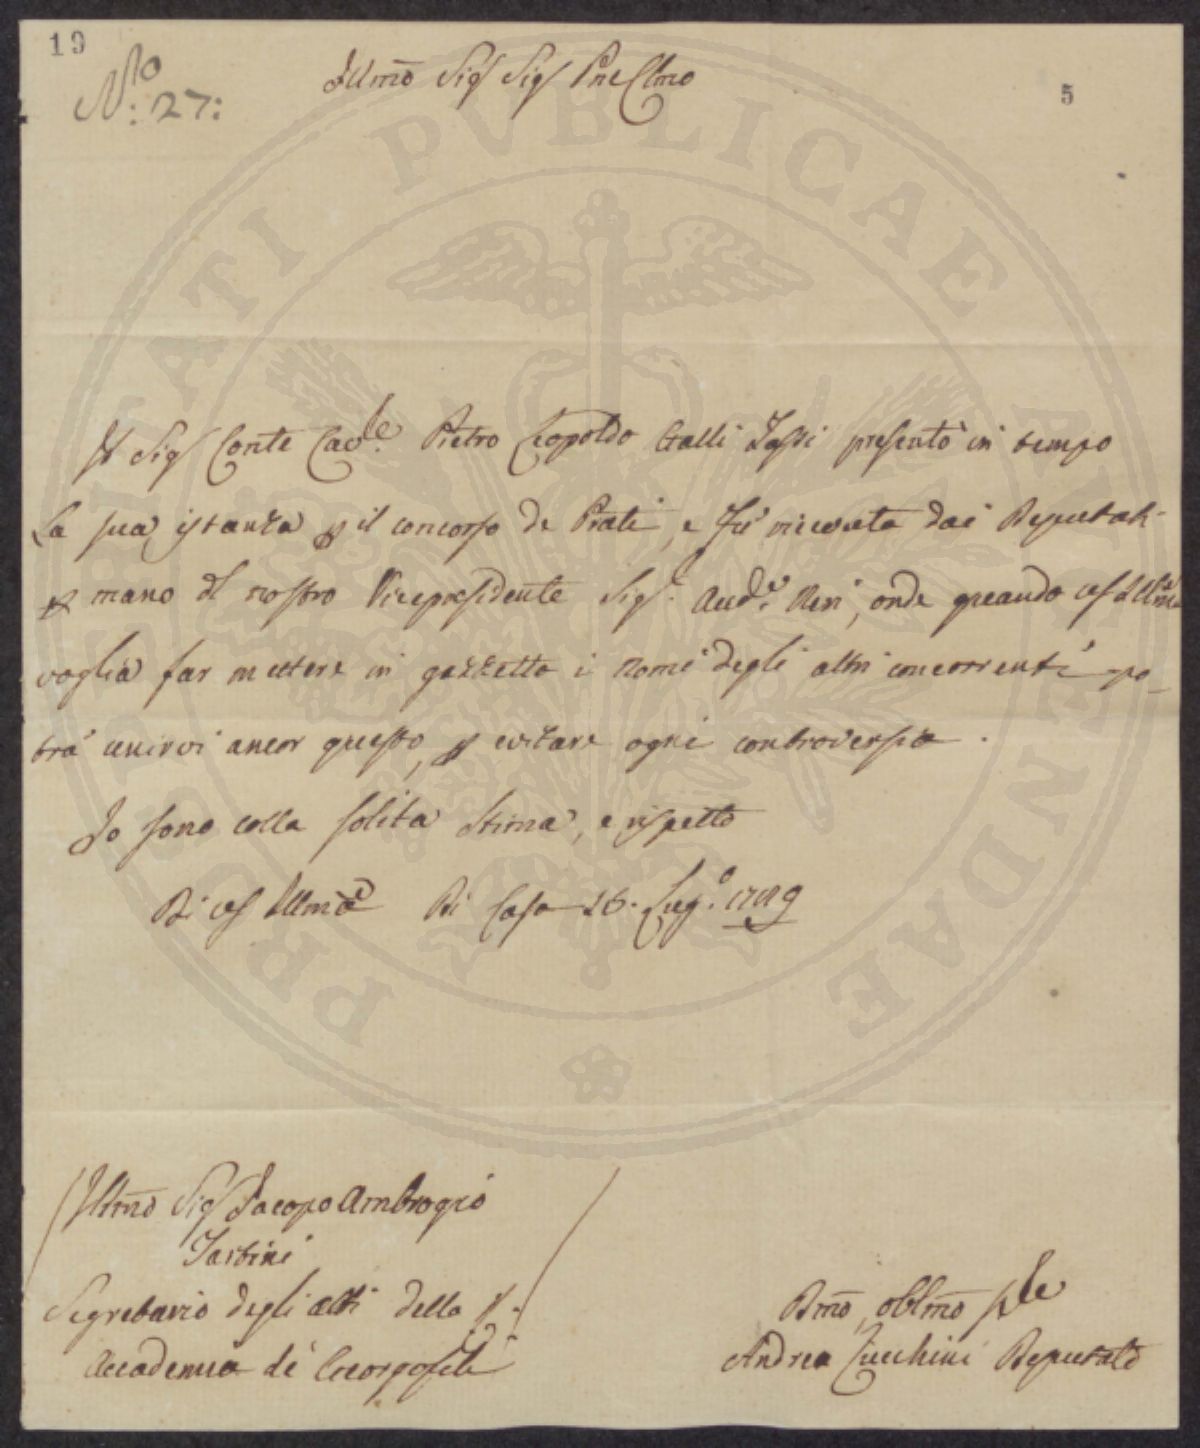 19
N.ro 27:
5
Illmõ Sig Sig Prne Clmo
Il Sig Conte Cav.le Pietro Leopoldo Galli Tassi presentò in tempo
la sua istanza p il concorso de Prati, e fù ricevuta dai Deputati
p mano dl nostro Vicepresidente Sig.r Aud.e Neri, onde quando VS Illma
voglia far mettere in gazzetta i nomi degli altri concorrenti po-
trà unirvi ancor questo, p evitare ogni controversia.
Io sono colla solita stima, e rispetto
Di VS Illma Di Casa 16. Lug.o 1789
Illmõ Sig Jacopo Ambrogio
Tartini
Segretario degli atti della R.
Accademia de' Georgofili
Dmõ, obblmõ s.re
Andrea Zucchini Deputato
PROSPERITATI PVBLICAE AVGENDAE